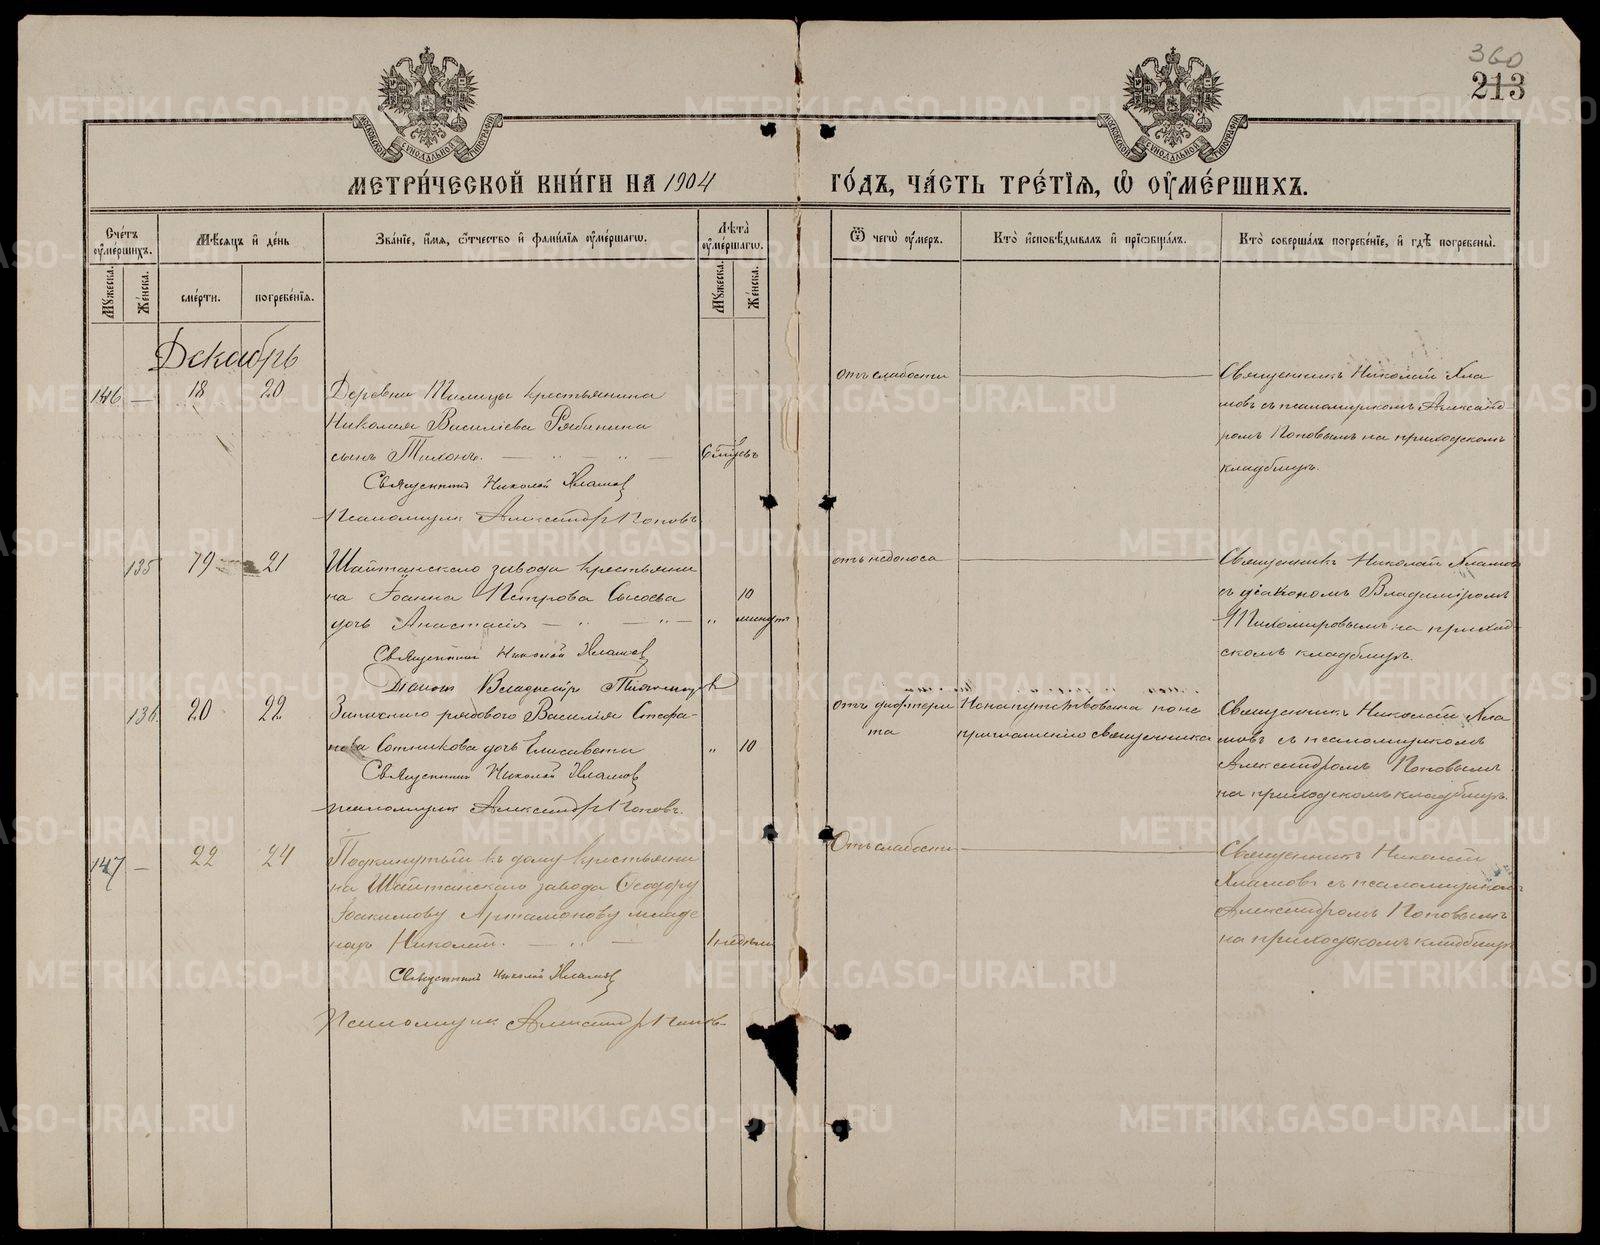 360
213
МОСКОВСКОЙ СУНОДАЛЬНОЙ ТИПОГРАФІИ
МОСКОВСКОЙ СУНОДАЛЬНОЙ ТИПОГРАФІИ
МЕТРИ́ЧЕСКОЙ КНИ́ГИ НА 1904 ГО́ДЪ, ЧА́СТЬ ТРЕ́ТІѦ, Ѡ҆ ОУ҆МЕ́РШИХЪ.
Сче́тъ оу҆ме́ршихъ.
Мꙋ́жеска.
Же́нска.
Мѣ́сѧцъ и҆ де́нь
сме́рти.
погребе́нїѧ.
Зва́нїе, и҆́мѧ, ѻ҆́тчество и҆ фами́лїѧ оу҆ме́ршагѡ.
Лѣ́та̀ оу҆ме́ршагѡ.
Мꙋ́жеска.
Же́нска.
Ѿ чегѡ̀ оу҆́мєръ.
Кто̀ и҆сповѣ́дывалъ и҆ прїѡбща́лъ.
Кто̀ соверша́лъ погребе́нїе, и҆ гдѣ̀ погребены̀.
Декабрь
146 — 18 20
Деревни Талицы крестьянина
Николая Василіева Рябинина
сынъ Тихонъ.
Священникъ Николай Хламов
Псаломщик Александр Поповъ
отъ слабости
Священникъ Николай Хла
мовъ съ псаломщикомъ Александ
ромъ Поповымъ на приходскомъ
кладбищѣ.
135 19 21
Шайтанскаго завода крестьяни
на Іоанна Петрова Сысоева
дочь Анастасія
10
минутъ
Священникъ Николай Хламов
Діакон Владимір Тихомиров
отъ недоноса
Священникъ Николай Хламов
съ діакономъ Владиміромъ
Тихомировымъ на приход-
скомъ кладбищѣ.
136 20 22
Запаснаго рядового Василія Стефа-
нова Сотникова дочь Елисавета
10
Священникъ Николай Хламов
псаломщик Александр Поповъ.
отъ дифтери
та
приглашенію священника
Священникъ Николай Хла
мовъ съ псаломщикомъ
Александромъ Поповымъ
на приходскомъ кладбищѣ.
147 — 22 24
Подкинутый къ дому крестьяни
на Шайтанскаго завода Ѳеодору
Іоакимову Артамонову младе
нецъ Николай.
1 недѣли
Священникъ Николай Хламов
Псаломщик Александр Поповъ
Отъ слабости
Священникъ Николай
Хламовъ съ псаломщиком
Александромъ Поповымъ
на приходскомъ кладбищѣ
METRIKI.GASO-URAL.RU